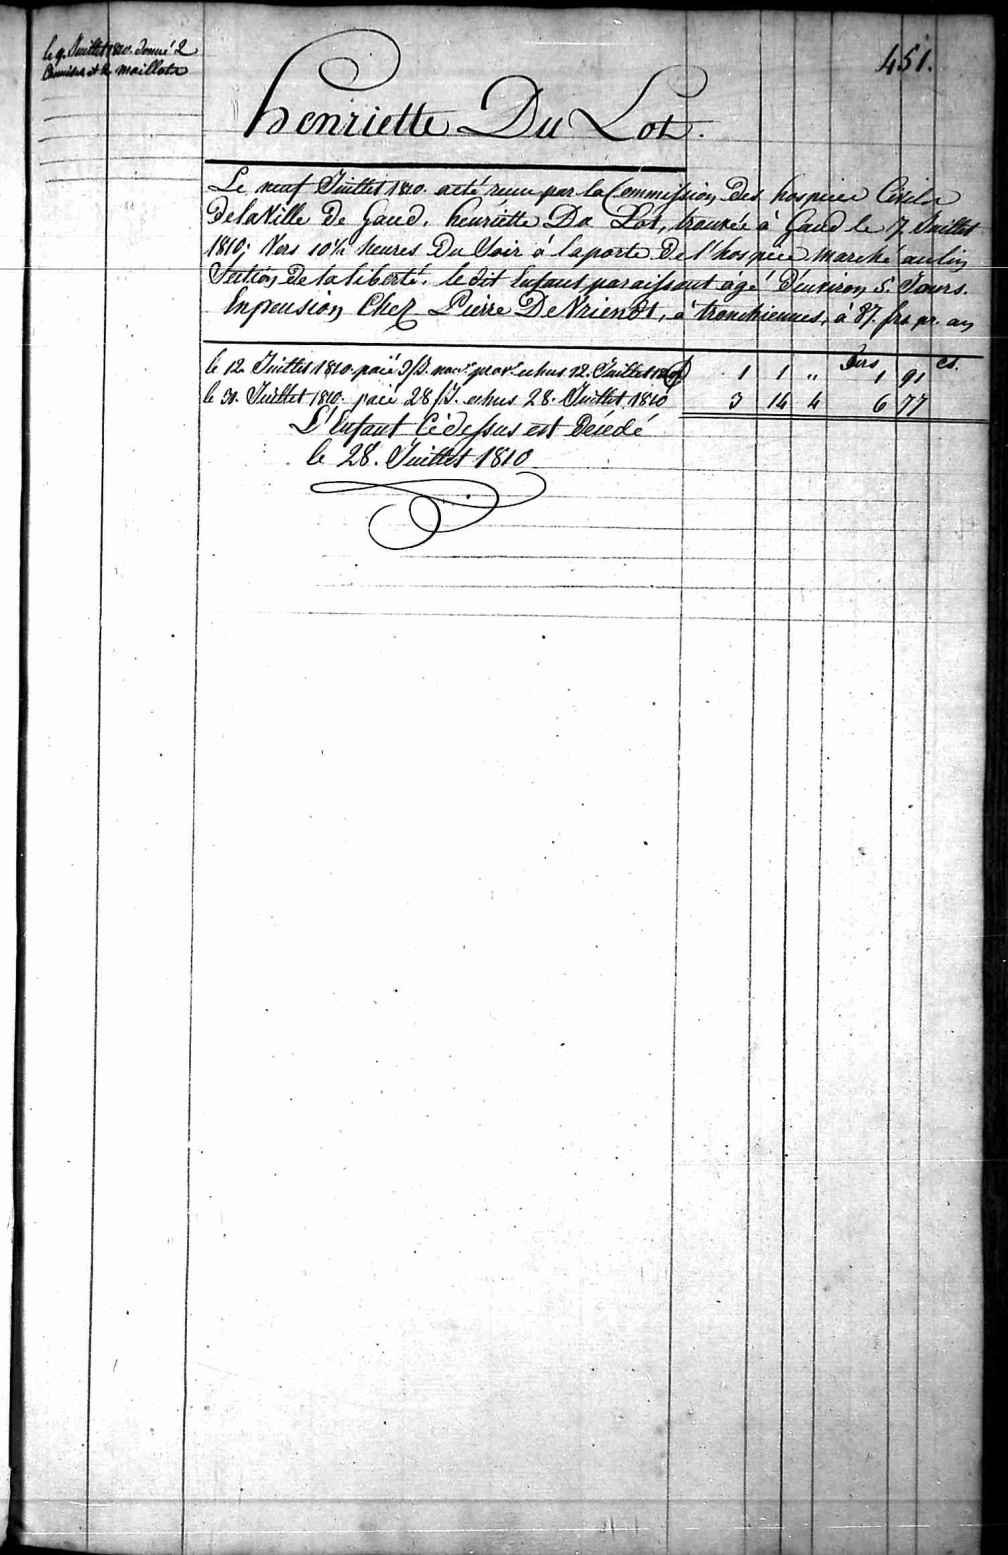 le 9. Juillet 1810. donné 2
Chemises et 2 maillots
451.
henriette Du Lot.
Le neuf Juillet 1810. a eté reçue par la Commission des hospices Civils
de la Ville de Gand, henriette Du Lot, trouvée à Gand le 7 Juillet
1810; Vers 10½ heures Du Soir à la porte De l'hospice marché au lin
Section De la liberté. le dit Enfant paraissant agé d'environ 5 Jours.
En pension Chez Pierre De Vriendt, à tronchiennes, à 87. frs pr. an
frs cs.
le 12 Juillet 1810 paié echus 12. Juillet 1 1 " 1 91
le 31. Juillet 1810. paié 28 echus 28. Juillet 1810 3 14 4 6 77
L'Enfant Ci dessus est Décédé
le 28. Juillet 1810